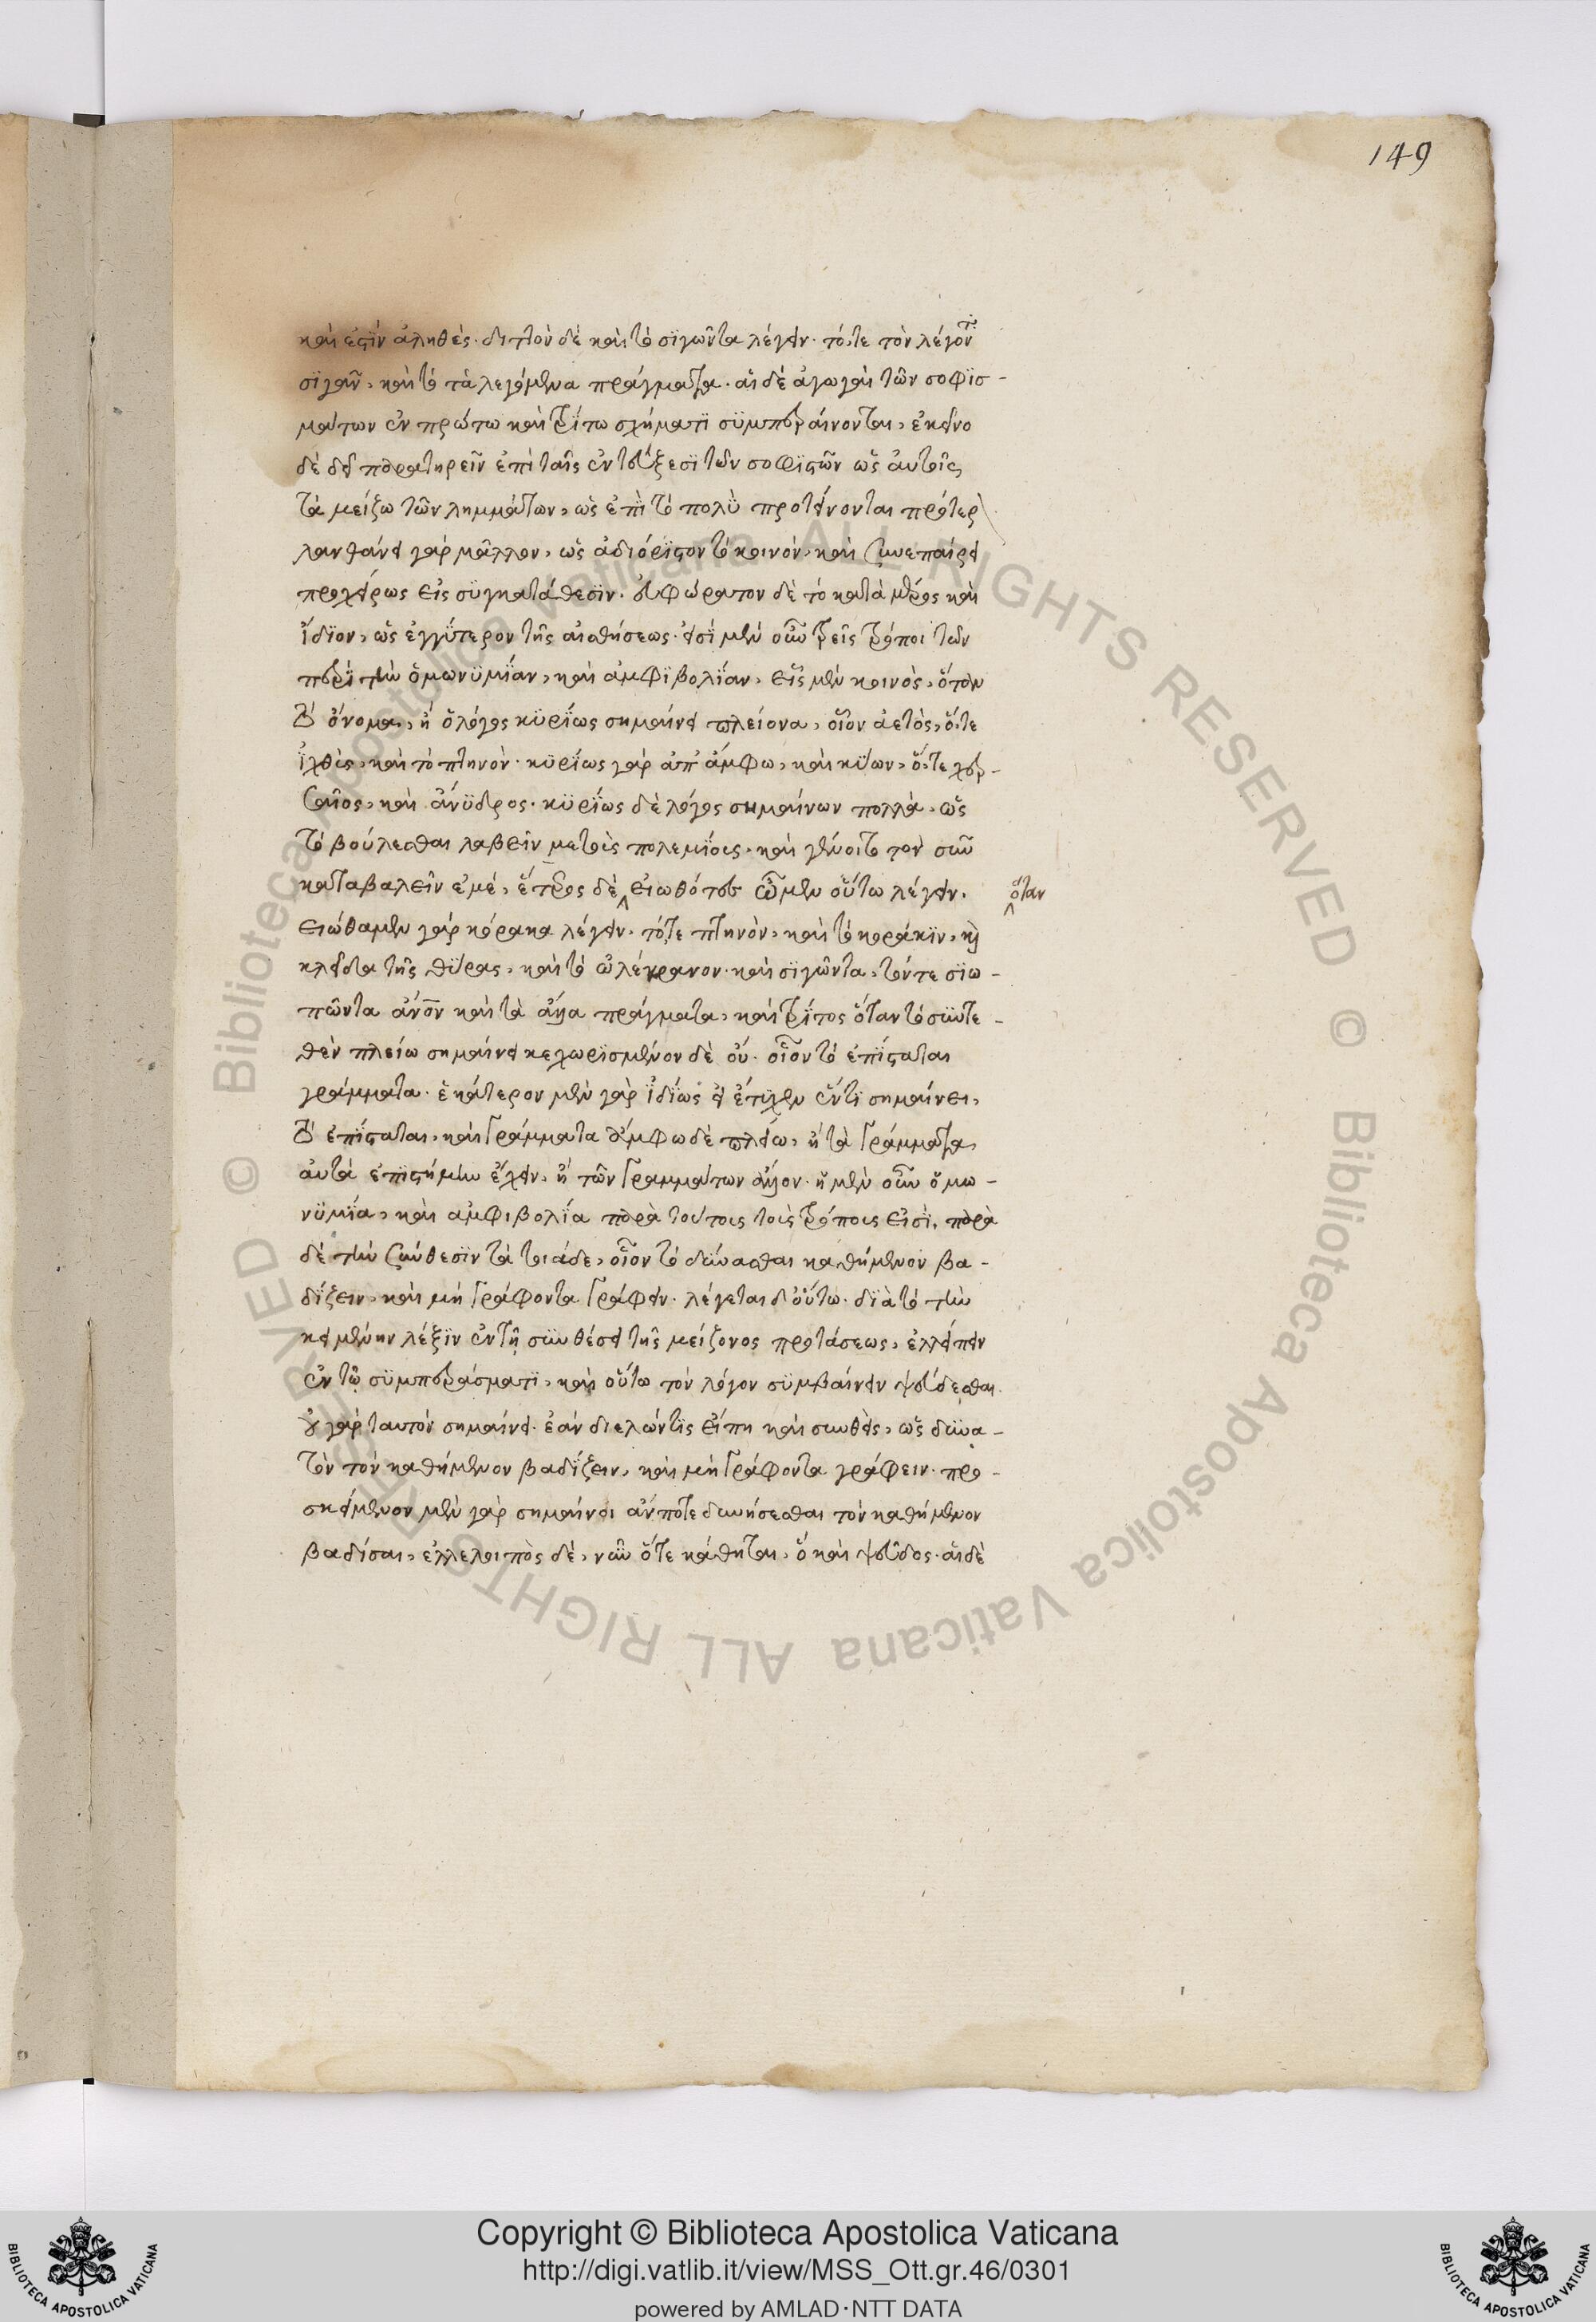 149
καὶ ἐστὶν ἀληθές· διττὸν δὲ καὶ τὸ σϊγῶντα λέγειν· τό, τε τὸν λέγοντα
σϊγᾶν, καὶ τὸ τὰ λεγόμενα πράγματα· αἱ δὲ ἀγωγαὶ τῶν σοφϊσ-
μάτων ἐν πρώτω καὶ τρίτω σχήματϊ συμπεραίνονται, ἐκεῖνο
δὲ δεῖ παρατηρεῖν ἐπὶ ταῖς ἐντεύξεσϊ τῶν σοφϊστῶν ὡς αὐτοῖς
τὰ μείζω τῶν λημμάτων, ὡς ἐπὶ τὸ πολὺ προτείνονται πρότερ
λανθάνει γὰρ μᾶλλον, ὡς ἀδιόρϊστον τὸ κοινὸν, καὶ συνεπαίρει
προχείρως εἰς συγκατάθεσϊν· εὐφώρατον δὲ τὸ κατὰ μέρος καὶ
ἴδϊον, ὡς ἐγγύτερον τῆς αἰσθήσεως· εἰσὶ μὲν οὖν τρεῖς τρόποι τῶν
περὶ τὴν ὁμωνϋμΐαν, καὶ ἀμφϊβολΐαν, εἷς μὲν κοινὸς, ὅταν
τὸ ὄνομα, ἢ ὁ λόγος κϋρΐως σημαίνει πλείονα, οἷον ἀετὸς, ὅ, τε
ἰχθὺς, καὶ τὸ πτηνὸν· κϋρΐως γὰρ ἐπ' ἄμφω, καὶ κύων, ὅ, τε χερ-
σαῖος, καὶ ἄνϋδρος· κϋρΐως δὲ λόγος σημαίνων πολλὰ, ὡς
τὸ βούλεσθαι λαβεῖν με τοὺς πολεμΐους, καὶ γένοιτο τὸν σῦν
καταβαλεῖν ἐμέ, ἕτερος δὲ εἰωθότες ὦμεν οὕτω λέγειν· ὅταν
εἰώθαμεν γὰρ κόρακα λέγειν, τό, τε πτηνὸν, καὶ τὸ κοράκϊν, καὶ
κλεῖδα τῆς θύρας, καὶ τὸ ὠλέκρανον· καὶ σϊγῶντα, τόν τε σϊω-
πῶντα ἄνον καὶ τὰ ἄλλα πράγματα, καὶ τρίτος ὅταν τὸ σϋντε-
θὲν πλείω σημαίνει κεχωρϊσμένον δὲ οὔ· οἷον τὸ ἐπΐσταται
γράμματα· ἑκάτερον μὲν γὰρ ἰδΐως εἰ ἔτυχεν ἕν τϊ σημαίνει,
τὸ ἐπΐσταται, καὶ γράμματα ἄμφω δὲ πλείω, ἢ τὰ γράμματα,
αὐτὰ ἐπϊστήμην ἔχειν, ἢ τῶν γραμμάτων ἄλλον· ἡ μὲν οὖν ὁμω-
νϋμΐα, καὶ ἀμφιβολΐα παρὰ τούτοις τοὶς τρόποις εἰσὶ, παρὰ
δὲ τὴν σύνθεσϊν τὰ τοιάδε, οἷον τὸ δύνασθαι καθήμενον βα-
δΐζειν, καὶ μὴ γράφοντα γράφειν· λέγεται δ' οὕτω· δϊὰ τὸ τὴν
κειμένην λέξϊν ἐν τῇ συνθέσει τῆς μείζονος προτάσεως, ἐλλείπειν
ἐν τῷ συμπεράσματϊ, καὶ οὕτω τὸν λόγον συμβαίνειν ψεύδεσθαι.
οὐ γὰρ ταυτὸν σημαίνει· ἐὰν διελών τις εἴπη καὶ συνθεὶς, ὡς δϋνα-
τὸν τὸν καθήμενον βαδΐζειν, καὶ μὴ γράφοντα γράφειν· προ-
σκείμενον μὲν γὰρ σημαίνει ἄν ποτε δυνήσεσθαι τὸν καθήμενον
βαδίσαι, ἐλλελοιπὸς δὲ, νῦν ὅτε κάθηται, ὃ καὶ ψεῦδος· αἱ δὲ
Copyright © Biblioteca Apostolica Vaticana
http://digi.vatlib.it/view/MSS_Ott.gr.46/0301
powered by AMLAD·NTT DATA
BIBLIOTECA APOSTOLICA VATICANA
BIBLIOTECA APOSTOLICA VATICANA
© Biblioteca Apostolica Vaticana ALL RIGHTS RESERVED © Biblioteca Apostolica Vaticana ALL RIGHTS RESERVED